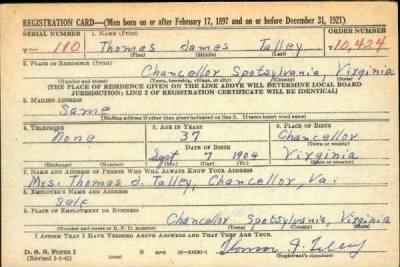 REGISTRATION CARD—(Men born on or after February 17, 1897 and on or before December 31, 1921)
SERIAL NUMBER 1. NAME (Print) ORDER NUMBER
T- 110 Thomas James Talley T 10,424
(First) (Middle) (Last)
2. PLACE OF RESIDENCE (Print)
Chancellor Spotsylvania, Virginia
(Number and street) (Town, township, village, or city) (County) (State)
[THE PLACE OF RESIDENCE GIVEN ON THE LINE ABOVE WILL DETERMINE LOCAL BOARD
JURISDICTION; LINE 2 OF REGISTRATION CERTIFICATE WILL BE IDENTICAL]
3. MAILING ADDRESS
Same
[Mailing address if other than place indicated on line 2. If same insert word same]
4. TELEPHONE 5. AGE IN YEARS 6. PLACE OF BIRTH
None 37 Chancellor
DATE OF BIRTH (Town or county)
Sept 7 1904 Virginia
(Exchange) (Number) (Mo.) (Day) (Yr.) (State or country)
7. NAME AND ADDRESS OF PERSON WHO WILL ALWAYS KNOW YOUR ADDRESS
Mrs. Thomas J. Talley, Chancellor, Va.
8. EMPLOYER'S NAME AND ADDRESS
Self
9. PLACE OF EMPLOYMENT OR BUSINESS
Chancellor Spotsylvania, Virginia
(Number and street or R. F. D. number) (Town) (County) (State)
I AFFIRM THAT I HAVE VERIFIED ABOVE ANSWERS AND THAT THEY ARE TRUE.
D. S. S. Form 1 Thomas J. Talley
(Revised 1-1-42) (over) 16—21630-1 (Registrant's signature)